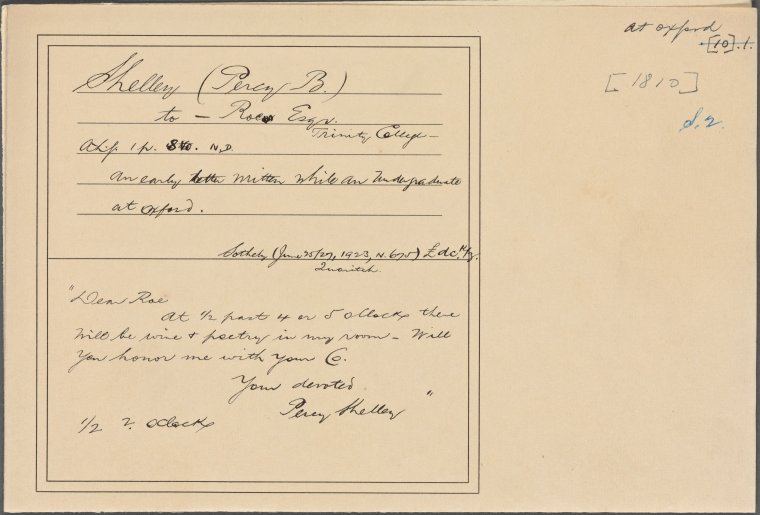 at Oxford
[10].1.
[1810]
S.2.
Shelley (Percy B.)
to — Roe Esqr.
Trinity College —
A.L.S. 1 p. 8vo. N.D.
An early letter written while an Undergraduate
at Oxford.
Sotheby (June 25/27, 1923, N. 675) £
Quaritch.
"Dear Roe
At 1/2 past 4 or 5 oClocks there
will be wine & poetry in my room — Will
you honor me with your Co.
Your devoted
Percy Shelley "
1/2 2. oClocks